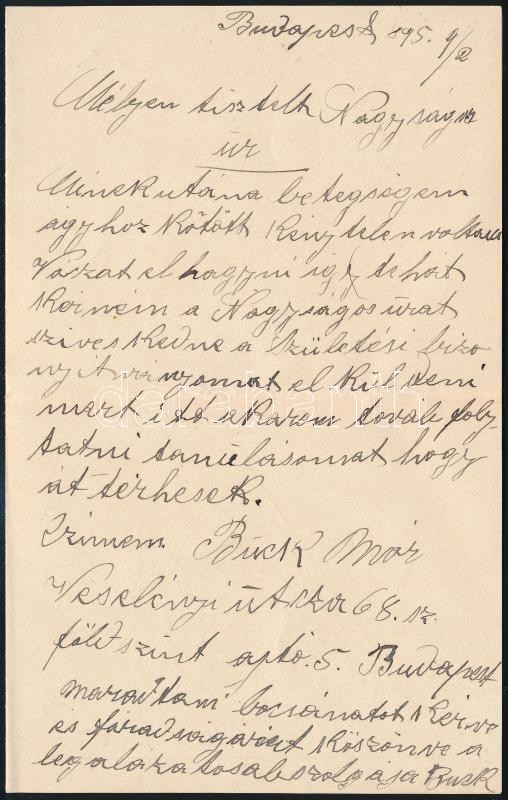 Budapest 895. 9/2
Mélyen tisztelt Nagyságos
úr
Minekutána betegségem
ágyhoz kötött kénytelen voltam
Vaszat elhagyni így tehát
kérném a Nagyságos úrat
sziveskedne a Születési bizo
nyitványomat elküldeni
mert itt akarom tovább foly
tatni tanulásomat hogy
át térhesek.
Czimem Buck Mór
Veselényi útcza 68. sz.
földszint ajtó. 5. Budapest
maradtam bocsánatot kérve
és fáradságáért köszönve a
legalázatosab szolgája Buck